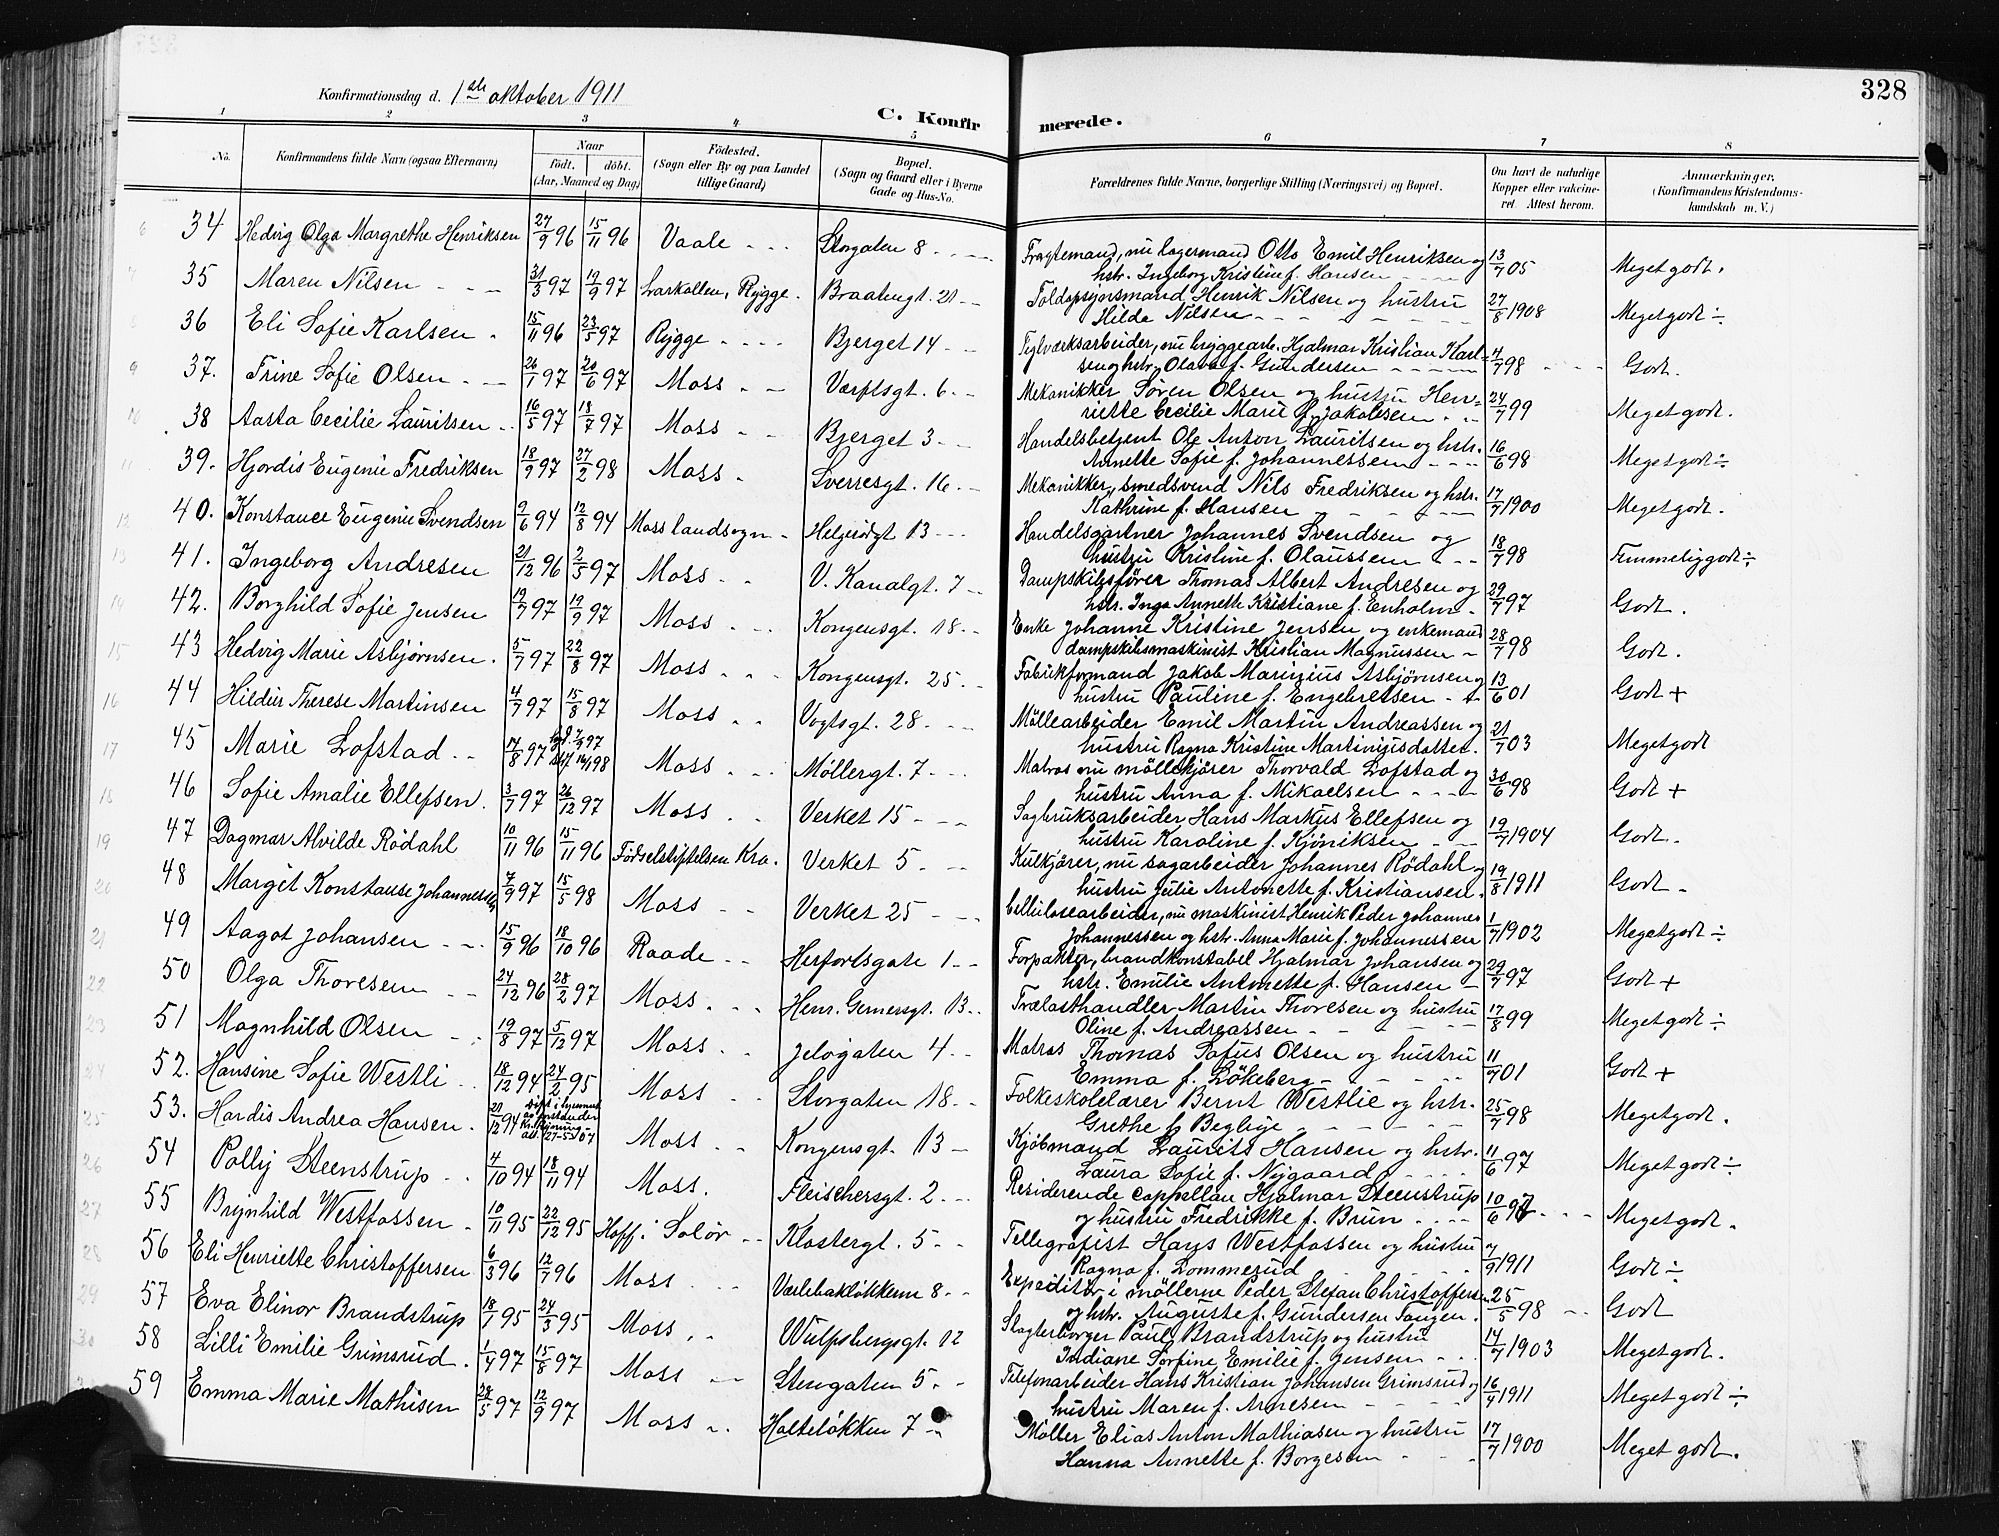 328
Konfirmationsdag d. 1ste oktober 1911
C. Konfirmerede.
1 2 3 4 5 6 7 8
No.
Konfirmandens fulde Navn (ogsaa Efternavn)
Naar
födt. döbt.
(Aar, Maaned og Dag)
Födested.
(Sogn eller By og paa Landet
tillige Gaard)
Bopæl.
(Sogn og Gaard eller i Byerne
Gade og Hus-No.
Forældrenes fulde Navne, borgerlige Stilling (Næringsvei) og Bopæl.
Om havt de naturlige
Kopper eller vakcine-
ret. Attest herom.
Anmærkninger.
(Konfirmandens Kristendoms-
kundskab m. V.)
34 Hedvig Olga Margrethe Henriksen 27/9 96 15/11 96 Vaale Storgaten 8
Fragtemand, nu lagermand Otto Emil Henriksen og
hstr. Ingeborg Kristine f. Hansen 13/7 05 Meget godt.
35 Maren Nilsen 31/3 97 19/9 97 Larkollen, Rygge. Braatengt. 21
Toldopsynsmand Henrik Nilsen og hustru
Hilda Nilsen 27/8 1908 Meget godt ÷
36 Eli Sofie Karlsen 15/11 96 23/5 97 Rygge Bjerget 14
Teglværksarbeider, nu bryggearb. Hjalmar Kristian Karl=
sen og hstr. Olava f. Gundersen 4/7 98 Godt.
37. Trine Sofie Olsen 26/1 97 20/6 97 Moss Værftsgt. 6
Mekanikker Sören Olsen og hustru Hen=
riette Cecilie Marie f. Jakobsen 24/7 99 Meget godt.
38 Aasta Cecilie Lauritsen 16/5 97 18/7 97 Moss Bjerget 3
Handelsbetjent Ole Anton Lauritsen og hstr.
Annette Sofie f. Johannessen 16/6 98 Meget godt ÷
39. Hjordis Eugenie Fredriksen 18/9 97 27/2 98 Moss Sverresgt. 16
Mekanikker, smedsvend Nils Fredriksen og hstr.
Kathrine f. Hansen 17/7 1900 Meget godt.
40. Konstance Eugenie Svendsen 9/6 94 12/8 94 Moss landsogn Helgerödgt 13
Handelsgartner Johannes Svendsen og
hustru Kristine f. Olaussen 18/7 98 Temmelig godt ÷
41. Ingeborg Andresen 21/12 96 2/5 97 Moss V. Kanalgt. 7
Dampskibsfører Thomas Albert Andresen og
hstr. Inga Annette Kristiane f. Enholm 29/7 97 Godt.
42. Borghild Sofie Jensen 19/7 97 19/9 97 Moss Kongensgt. 18
Enke Johanne Kristine Jensen og enkemand
dampskibsmaskinist Kristian Magnussen 28/7 98 Godt.
43 Hedvig Marie Asbjørnsen 5/7 97 22/8 97 Moss Kongensgt. 25
Fabrikformand Jakob Marinius Asbjørnsen og
hustru Pauline f. Engebretsen 13/6 01 Godt +
44 Hildur Therese Martinsen 4/7 97 15/8 97 Moss Vogtsgt. 28
Møllearbeider Emil Martin Andreassen og
hustru Ragna Kristine Martiniusdatter 21/7 03 Meget godt
45 Marie Lofstad 17/8 97 Moss Møllergt. 7
Matros nu møllekjører Thorvald Lofstad og
hustru Anna f. Mikaelsen 30/6 98 Godt +
46 Sofie Amalie Ellefsen 3/7 97 26/12 97 Moss Verket 15
Sagbruksarbeider Hans Markus Ellefsen og
hustru Karoline f. Kjøniksen 19/7 1904 Godt.
47 Dagmar Alvilde Rödahl 10/11 96 15/11 96 Födselstiftelsen Kra. Verket 5
Kulkjører, nu sagarbeider Johannes Rödahl og
hustru Julie Antonette f. Kristiansen 19/8 1911 Godt
48 Margit Konstanse Johannessen 7/9 97 15/5 98 Moss Verket 25
Cellulosearbeider, nu maskinist Henrik Peder Johannes
Johannessen og hstr. Anna Marie f. Johannessen 1/7 1902 Meget godt ÷
49 Aagot Johansen 15/9 96 18/10 96 Raade Herfordsgate 1
Forpakter, brandkonstabel Hjalmar Johansen og
hstr. Emilie Antonette f. Hansen 29/7 97 Godt +
50 Olga Thoresen 24/12 96 28/2 97 Moss Henr. Gernersgt. 13
Trælasthandler Martin Thoresen og hustru
Oline f. Andreassen 17/8 99 Meget godt ÷
51 Magnhild Olsen 19/8 97 5/12 97 Moss Jeløgaten 4
Matros Thomas Sofus Olsen og hustru
Emma f. Lökeberg 11/7 01 Godt +
52. Hansine Sofie Westli 18/12 94 24/2 95 Moss Storgaten 18
Folkeskolelærer Bernt Westlie og hstr.
Grethe f. Beglije 25/7 98 Meget godt.
53. Hardis Andrea Hansen 21/12 94 Moss Kongensgt. 13
Kjöbmand Laurits Hansen og hstr.
Laura Sofie f. Nygaard 11/6 97 Meget godt ÷
54 Polly Steenstrup 4/10 94 18/11 94 Moss. Fleischersgt. 2
Residerende cappellan Hjalmar Steenstrup
og hustru Fredrikke f. Brun 10/6 97 Meget godt.
55 Brynhild Westfossen 10/11 95 22/12 95 Hoff i Solör Klostergt. 5
Tellegrafist Hans Westfossen og hustru
Ragna f. Lommerud 7/9 1911 Godt ÷
56 Eli Henriette Christoffersen 6/3 96 12/7 96 Moss Værlebakløkken 8
Expeditör i møllerne Peder Stefan Christoffersen
og hstr. Auguste f. Gundersen Tangen. 25/5 98 Godt
57 Eva Elinor Brandstrup 18/1 95 24/3 95 Moss Wulfsbergsgt. 12
Slagterborger Paul Brandstrup og hustru
Indiane Sorfine Emilie f. Jensen 14/7 1903 Meget godt.
58 Lilli Emilie Grimsrud 1/4 97 15/8 97 Moss Stengaten 5
Telefonarbeider Hans Kristian Johansen Grimsrud og
hustru Maren f. Arnesen 16/4 1911 Meget godt ÷
59 Emma Marie Mathisen 28/5 97 12/9 97 Moss Holteløkken 7
Møller Elias Anton Mathiasen og hustru
Hanna Annette f. Borgesen 17/7 1900 Meget godt.